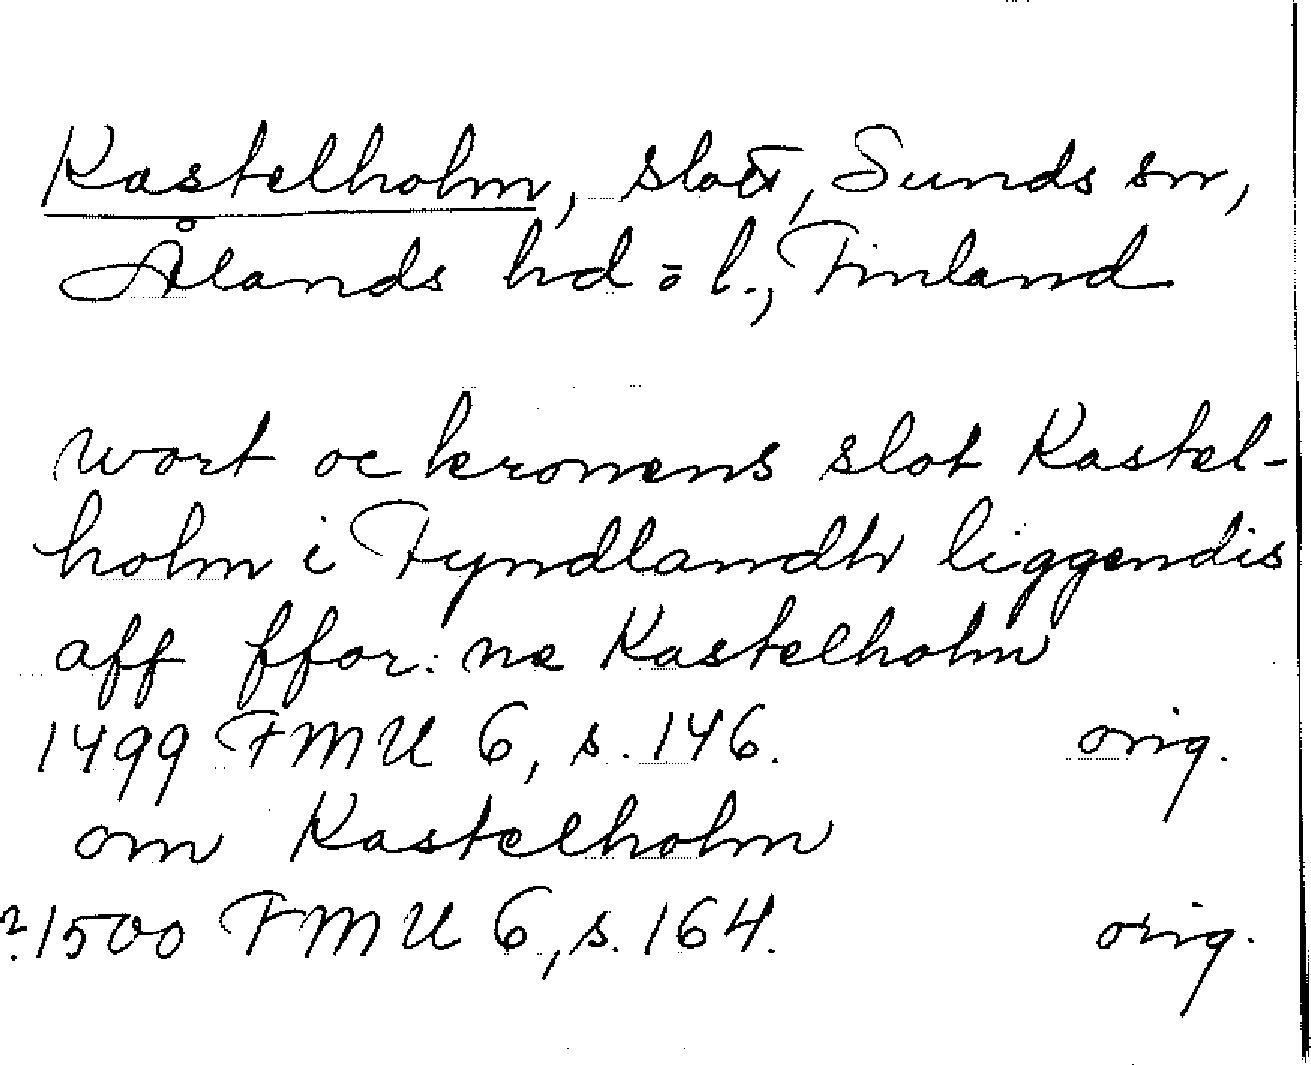 Kastelholm, slott, Sunds sn,
Ålands hd o l., Finland
wort oc kronens slot Kastel-
holm i Fyndlandh liggendis
aff ffor: ne Kastelholm
1499 FMU 6, s. 146. orig.
om Kastelholm
?1500 FMU 6, s. 164. orig.